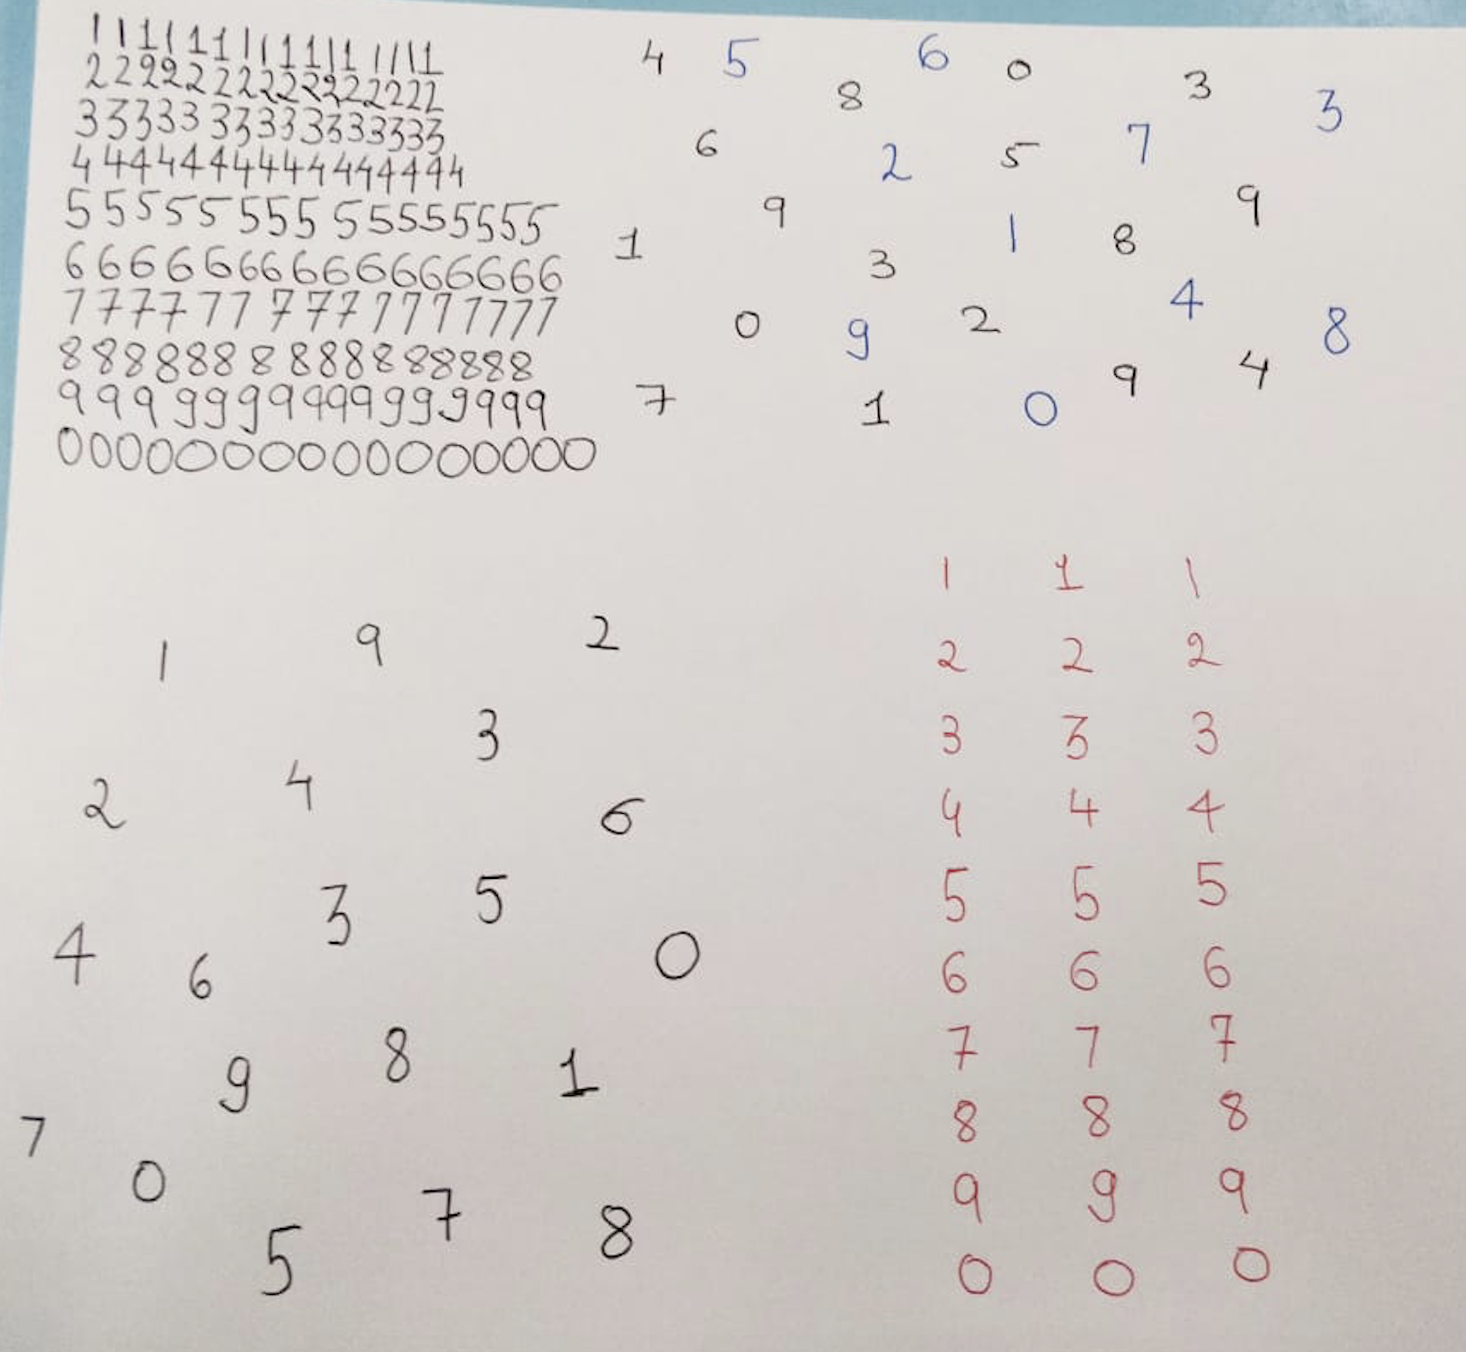 11111111111111111
22222222222222222
33333 33333333333
4444444444444444
55555 555 55555555
66666666666666666
7777 77 777 7777777
888888 8 88888888 8
999 99999999999999
00000000000000000
4 5 8 6 0 3 3
6 2 5 7
1 9 3 1 8 9
0 9 2 4 8
7 1 0 9 4
1 9 2
3
2 4 6
3 5
4 6 0
9 8 1
7 0
5 7 8
1 1 1
2 2 2
3 3 3
4 4 4
5 5 5
6 6 6
7 7 7
8 8 8
9 9 9
0 0 0